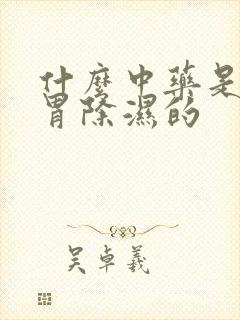 什麼中藥是
胃除濕的
吴卓義